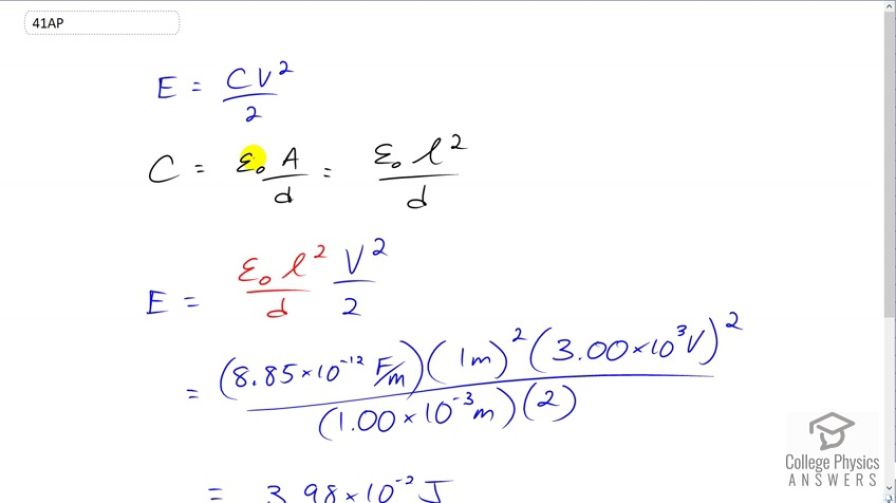 41AP
E = CV²/2
C = ε₀A/d = ε₀l²/d
E = ε₀l²/d V²/2
= (8.85×10⁻¹² F/m)(1m)²(3.00×10³V)²/(1.00×10⁻³m)(2)
= 3.98×10⁻² J
College Physics
ANSWERS